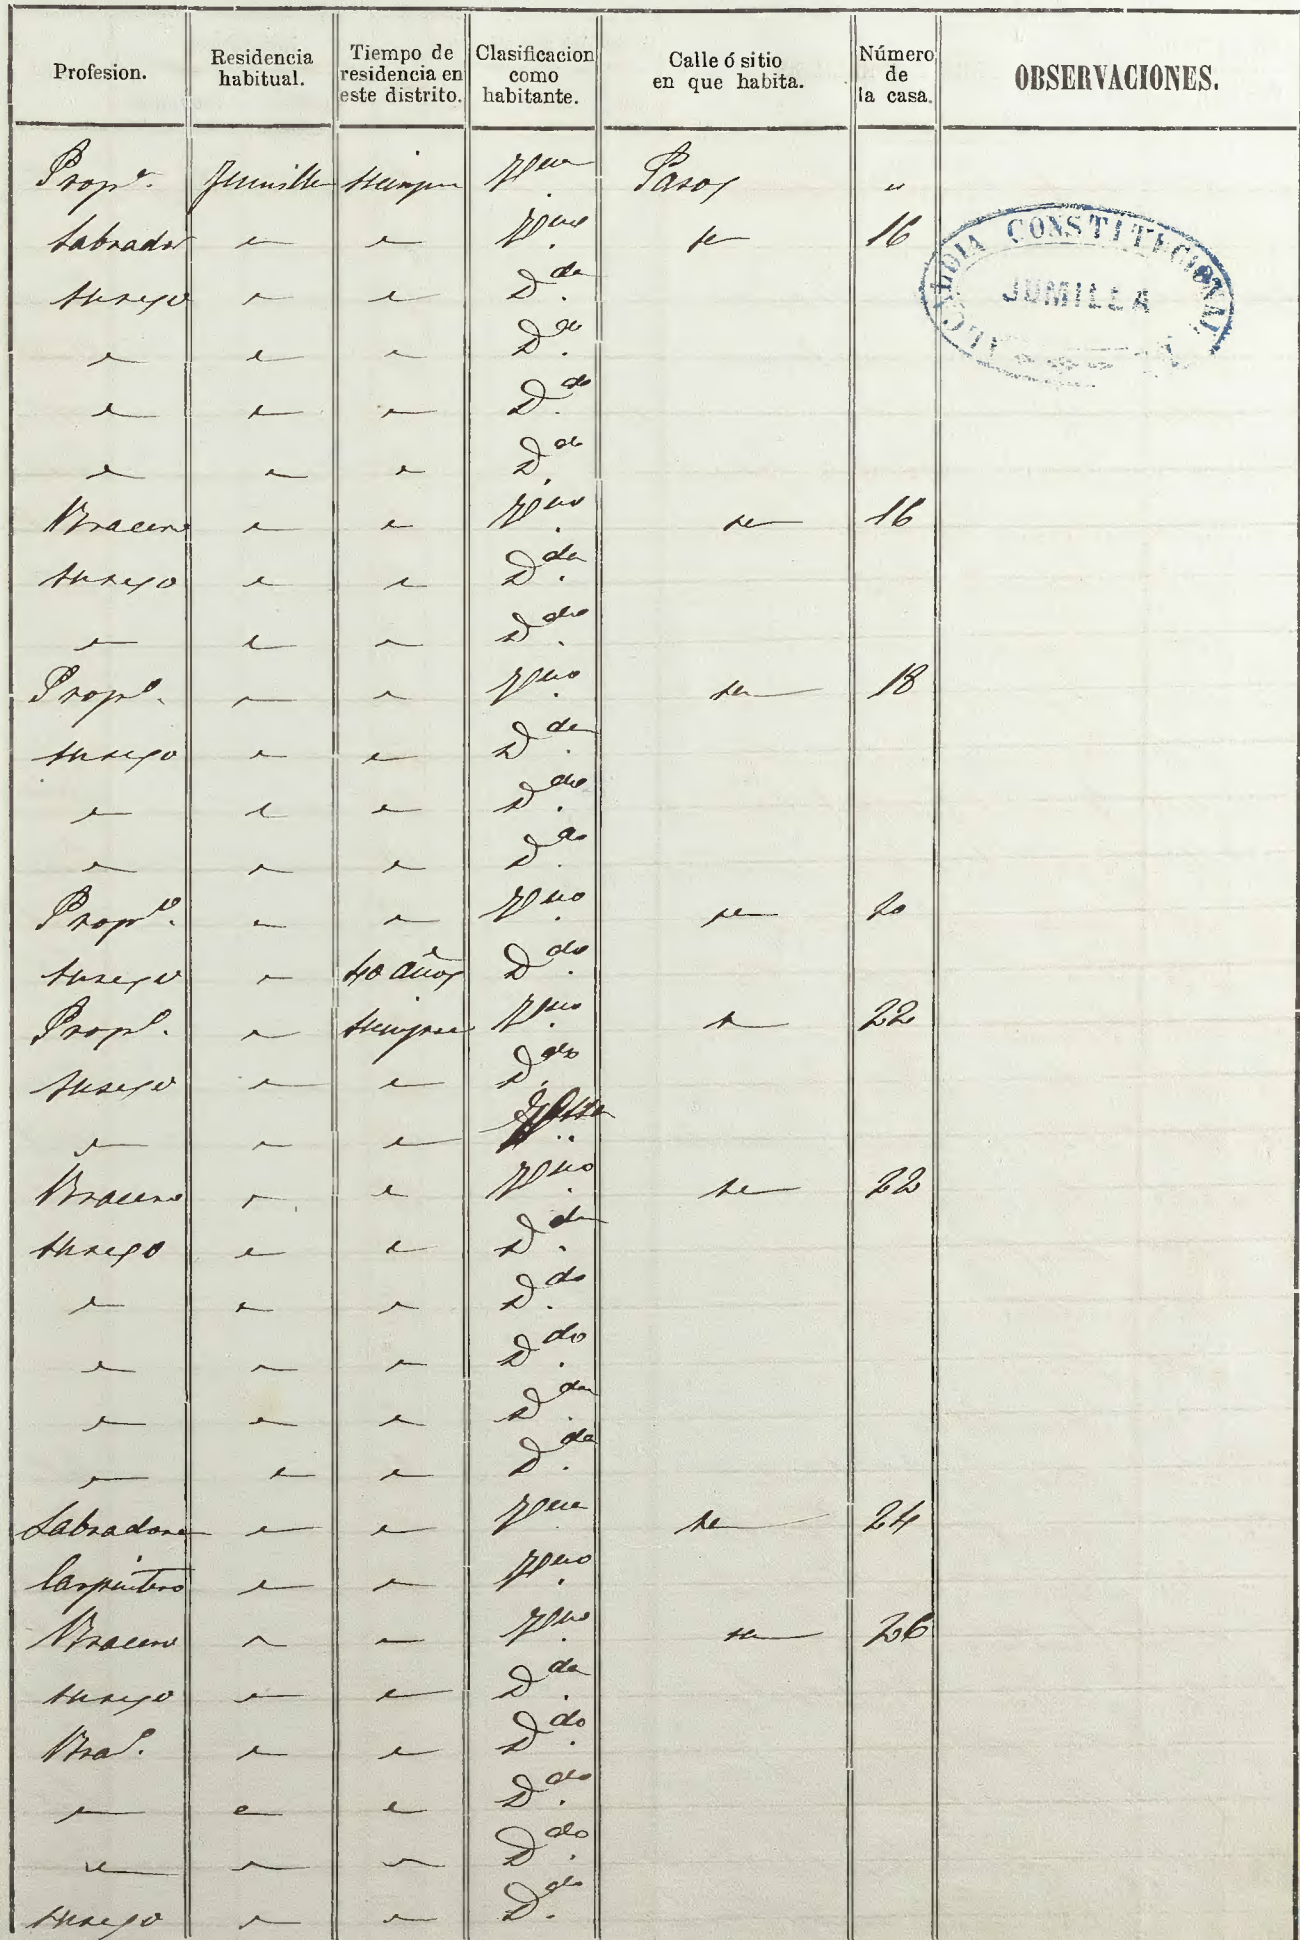 Profesion. Residencia habitual. Tiempo de residencia en este distrito. Clasificacion como habitante. Calle ó sitio en que habita. Número de la casa. OBSERVACIONES.
Prop.º Jumilla siempre Pasos "
Labrador " " se 16
ALCALDIA CONSTITUCIONAL
JUMILLA
su sexo " " D.da
" " " D.do
" " " D.do
" " " D.do
Bracero " " se 16
su sexo " " D.da
" " " D.do
Prop.º " " se 18
su sexo " " D.da
" " " D.do
" " " D.do
Prop.º " " se 20
su sexo " 40 años D.do
Prop.º " siempre se 22
su sexo " " D.do
" " "
Bracero " " se 22
su sexo " " D.da
" " " D.do
" " " D.do
" " " D.da
" " " D.da
Labradora " " se 24
Carpintero " "
Bracero " " se 26
su sexo " " D.da
Bra.º " " D.do
" " " D.do
" " " D.do
su sexo " " D.do